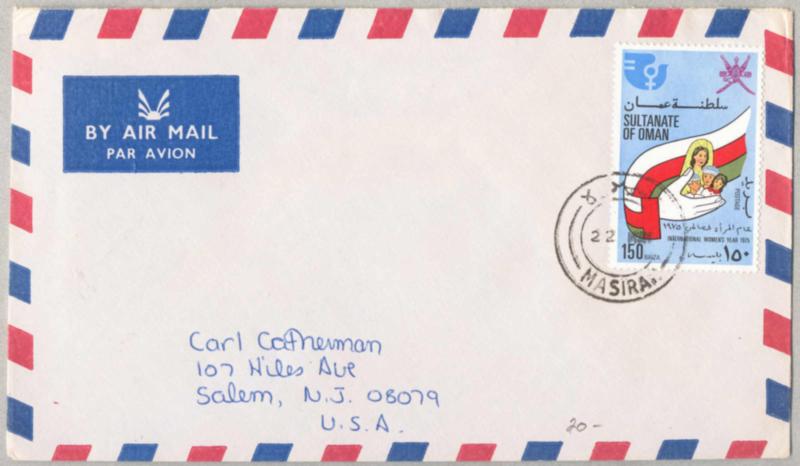 BY AIR MAIL
PAR AVION
سلطنة عمان
SULTANATE
OF OMAN
بريد
POSTAGE
عام المرأة العالمي ١٩٧٥
INTERNATIONAL WOMEN'S YEAR 1975
150 BAIZA
١٥٠ بيسة
22
MASIRAH
Carl Catherman
107 Niles Ave
Salem, N.J. 08079
U.S.A.
20-